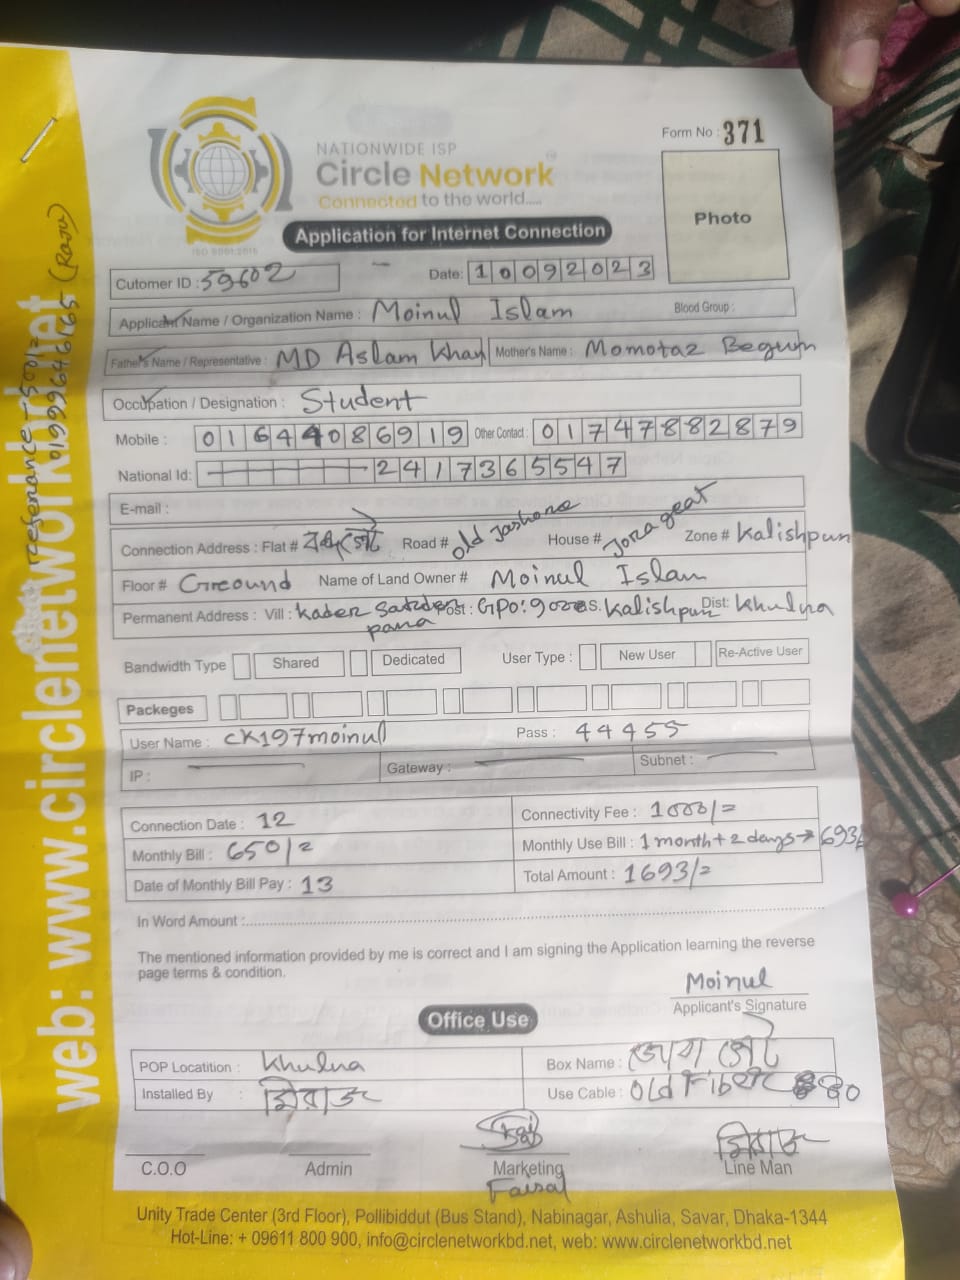 Form No : 371
NATIONWIDE ISP
Circle Network
Connected to the world.....
ISO 9001:2015
Photo
Application for Internet Connection
Cutomer ID : 59602 Date: 10092023
Applicant Name / Organization Name : Moinul Islam Blood Group :
Father's Name / Representative : MD Aslam Khan Mother's Name : Momotaz Begum
Occupation / Designation : Student
Mobile : 01644086919 Other Contact : 01747882879
National Id: 2417365547
E-mail :
Connection Address : Flat # Road # Old Jashore House # Jora geat Zone # Kalishpur
Floor # Ground Name of Land Owner # Moinul Islam
Permanent Address : Vill : Kader Sardar para Post : GPO: 9000 P.S. Kalishpur Dist: Khulna
Bandwidth Type Shared Dedicated User Type : New User Re-Active User
Packeges
User Name : CK197moinul Pass : 44455
IP : Gateway : Subnet :
Connection Date : 12 Connectivity Fee : 1000/=
Monthly Bill : 650/= Monthly Use Bill : 1 month + 2 days → 693/
Date of Monthly Bill Pay : 13 Total Amount : 1693/=
In Word Amount :
The mentioned information provided by me is correct and I am signing the Application learning the reverse
page terms & condition.
Moinul
Applicant's Signature
Office Use
POP Locatition : Khulna Box Name :
Installed By : মিরাজ Use Cable : Old Fiber 80
C.O.O Admin Marketing Line Man
Faisal মিরাজ
Unity Trade Center (3rd Floor), Pollibiddut (Bus Stand), Nabinagar, Ashulia, Savar, Dhaka-1344
Hot-Line: + 09611 800 900, info@circlenetworkbd.net, web: www.circlenetworkbd.net
web: www.circlenetworkbd.net
(Raju)